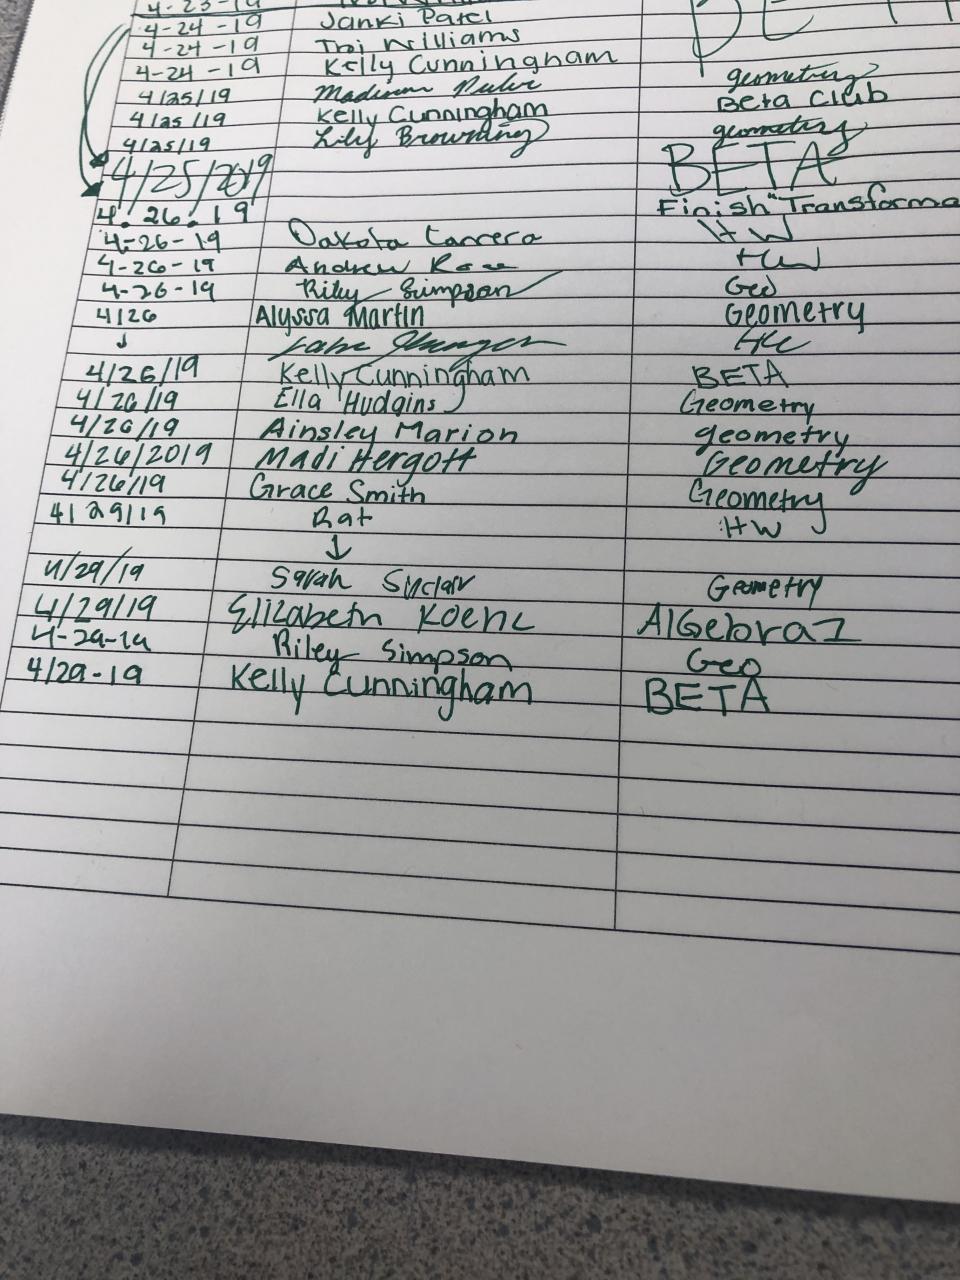 4-23-19
4-24-19 Janki Patel
4-24-19 Troi Williams
4-24-19 Kelly Cunningham
4/25/19 Madison geometry
4/25/19 Kelly Cunningham Beta Club
4/25/19 Lily Browning geometry
4/25/2019 BETA
4.26.19 Finish "Transforma
4-26-19 Dakota Carrera HW
4-26-19 Andrew HW
4-26-19 Riley Simpson Geo
4/26 Alyssa Martin Geometry
↓
4/26/19 Kelly Cunningham BETA
4/26/19 Ella Hudgins Geometry
4/26/19 Ainsley Marion geometry
4/26/2019 Madi Hergott Geometry
4/26/19 Grace Smith Geometry
4/29/19 Rat HW
↓
4/29/19 Sarah Syclair Geometry
4/29/19 Elizabeth Koenc AlGebra1
4-29-19 Riley Simpson Geo
4/29-19 Kelly Cunningham BETA